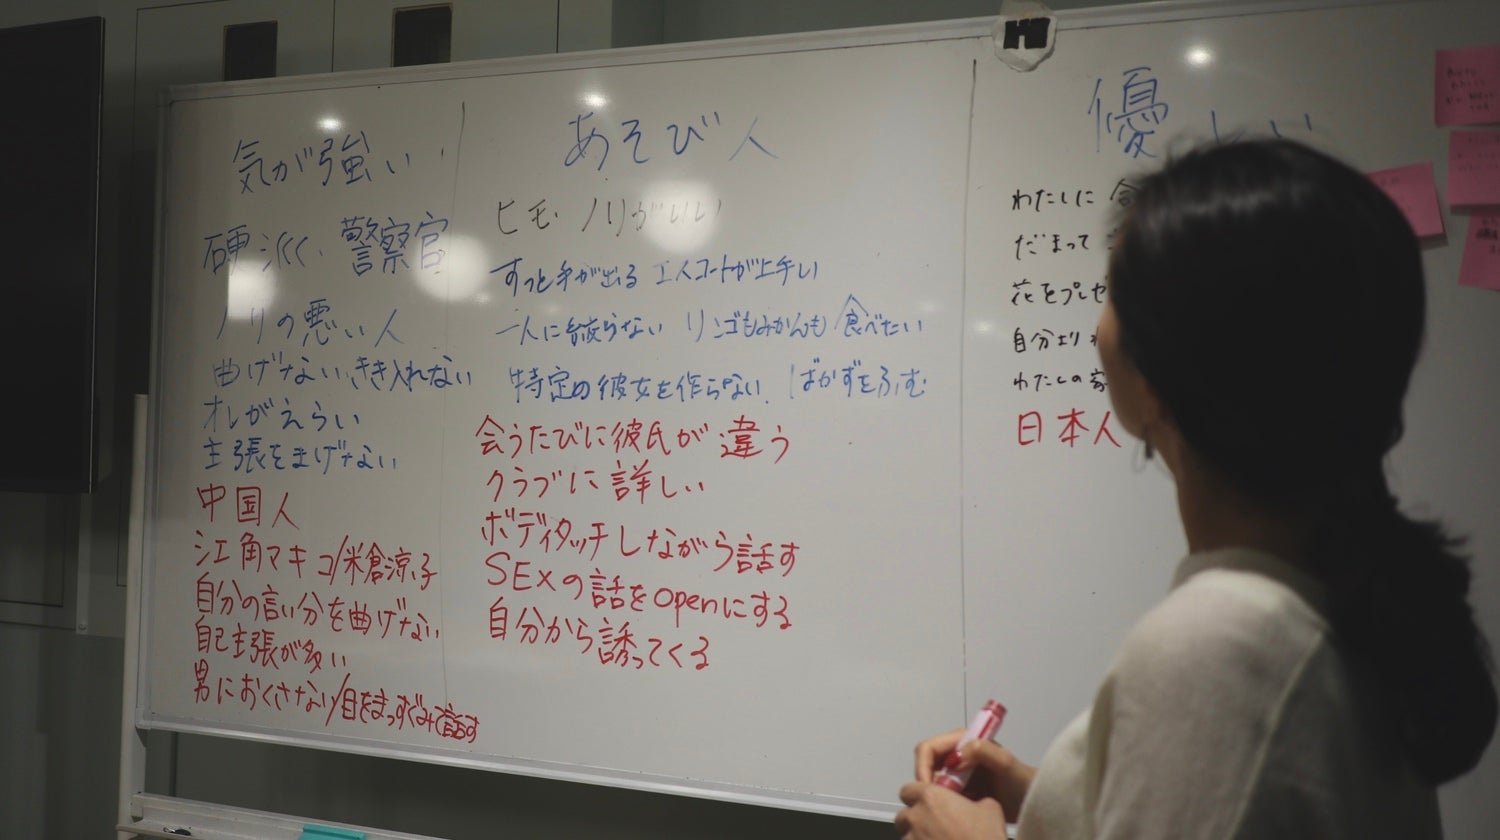 気が強い
硬派、警察官
ノリの悪い人
曲げない、きき入れない
オレがえらい
主張をまげない
中国人
江角マキコ/米倉涼子
自分の言い分を曲げない
自己主張が多い
男におくさない/目をまっすぐみて話す
あそび人
ヒモ、ノリがいい
すっと手が出る エスコートが上手い
一人に絞らない リンゴもみかんも食べたい
特定の彼女を作らない、ばかずをふむ
会うたびに彼氏が違う
クラブに詳しい
ボディタッチしながら話す
SEXの話をopenにする
自分から誘ってくる
優しい
わたしに
だまって
花をプレゼ
自分より
わたしの家
日本人